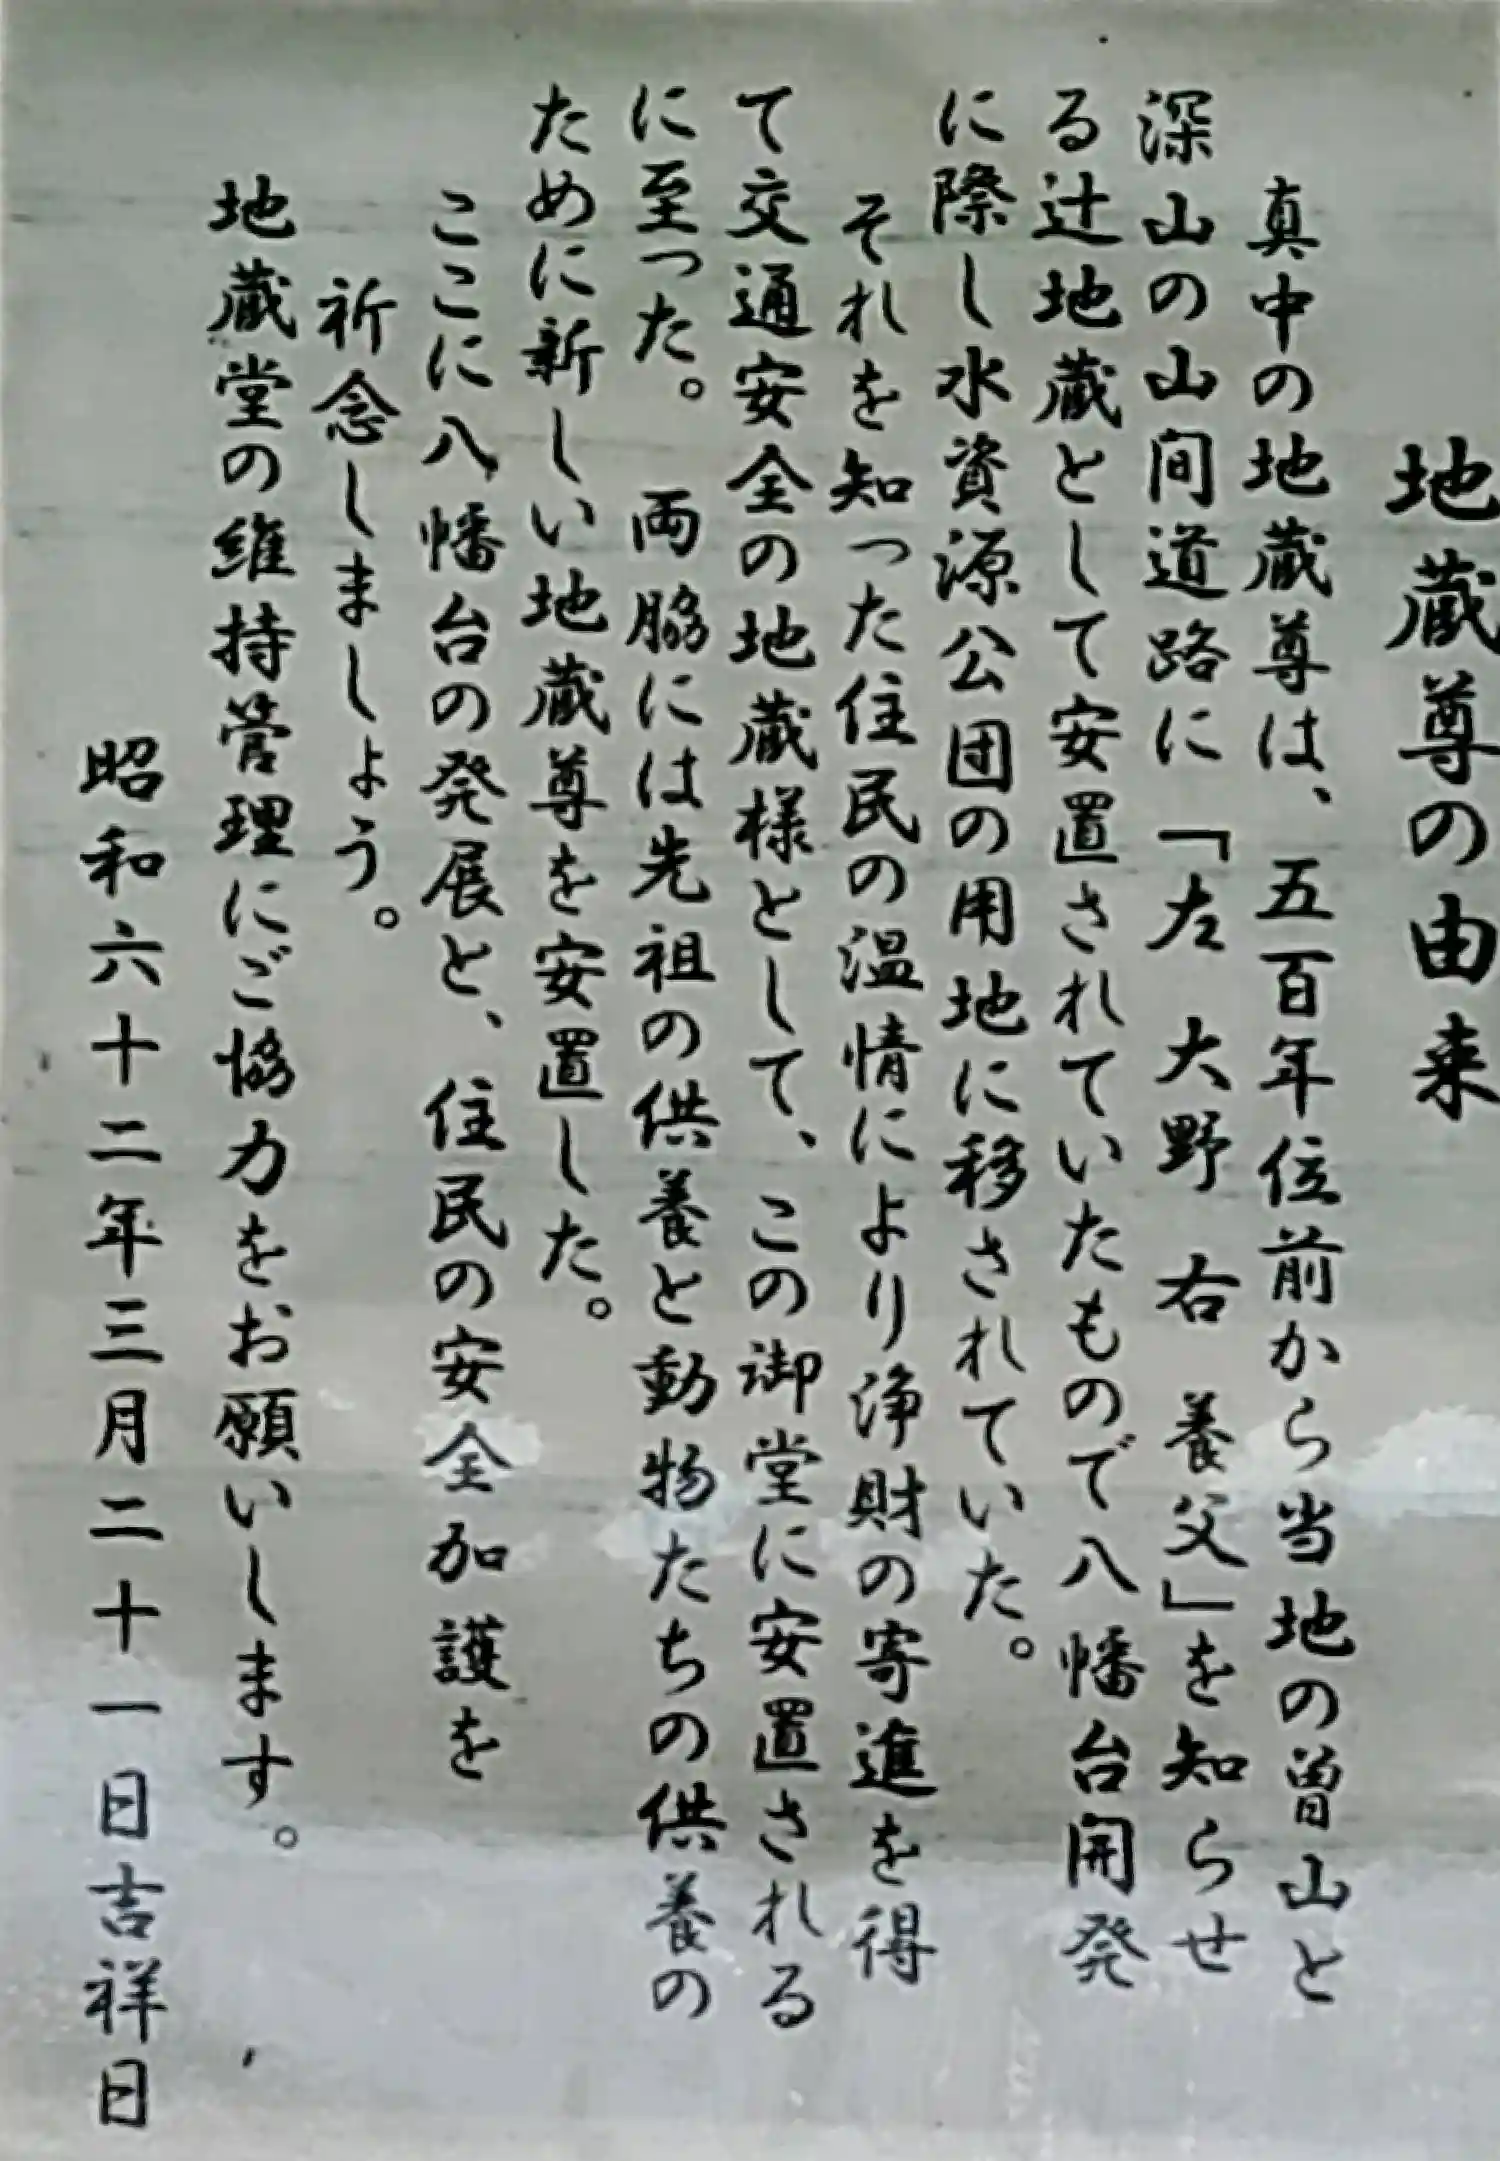 地蔵尊の由来
真中の地蔵尊は、五百年位前から当地の曽山と
深山の山間道路に「左 大野 右 養父」を知らせ
る辻地蔵として安置されていたもので八幡台開発
に際し水資源公団の用地に移されていた。
それを知った住民の温情により浄財の寄進を得
て交通安全の地蔵様として、この御堂に安置される
に至った。 両脇には先祖の供養と動物たちの供養の
ために新しい地蔵尊を安置した。
ここに八幡台の発展と、住民の安全加護を
祈念しましょう。
地蔵堂の維持管理にご協力をお願いします。
昭和六十二年三月二十一日吉祥日